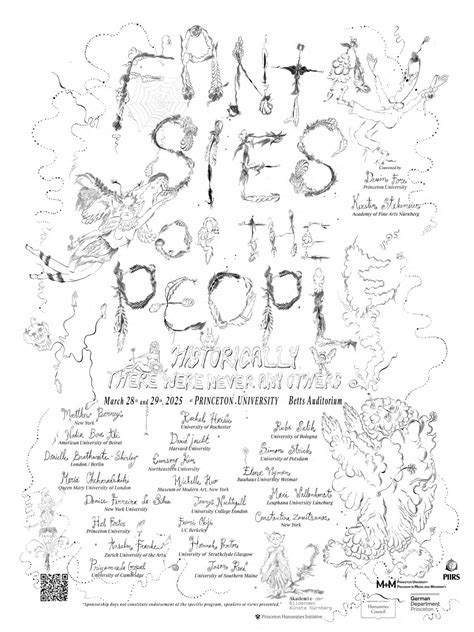 FANTA
SIES
OF THE
PEOPLE
HISTORICALLY
THERE WERE NEVER ANY OTHERS
March 28th and 29th, 2025 @ PRINCETON-UNIVERSITY Betts Auditorium
Convened by
Devin Fore
Princeton University
Kerstin Stakemeier
Academy of Fine Arts Nürnberg
New York
American University of Beirut
London / Berlin
Queen Mary University of London
Denise Ferreira da Silva
New York University
Hal Foster
Princeton University
Anselm Franke
Zurich University of the Arts
Priyamvada Gopal
University of Cambridge
Rachel
University of Rochester
David Joselit
Harvard University
Eunsong Kim
Northeastern University
Michelle Kuo
Museum of Modern Art, New York
University College London
UC Berkeley
Hannah Proctor
University of Strathclyde Glasgow
University of Southern Maine
University of Bologna
University of Potsdam
Bauhaus University Weimar
Leuphana University Lüneburg
New York
"Sponsorship does not constitute endorsement of the specific program, speakers or views presented."
Akademie der
Bildenden
Künste Nürnberg
Princeton Humanities Initiative
M+M PRINCETON UNIVERSITY
PROGRAM IN MEDIA AND MODERNITY
PIIRS
Humanities
Council
German
Department
Princeton